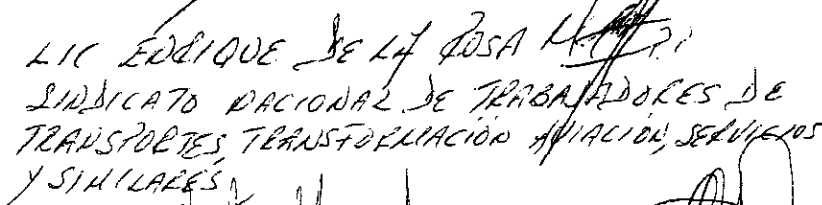 LIC ENRIQUE DE LA ROSA
SINDICATO NACIONAL DE TRABAJADORES DE
TRANSPORTES, TRANSFORMACIÓN AVIACIÓN, SERVICIOS
Y SIMILARES